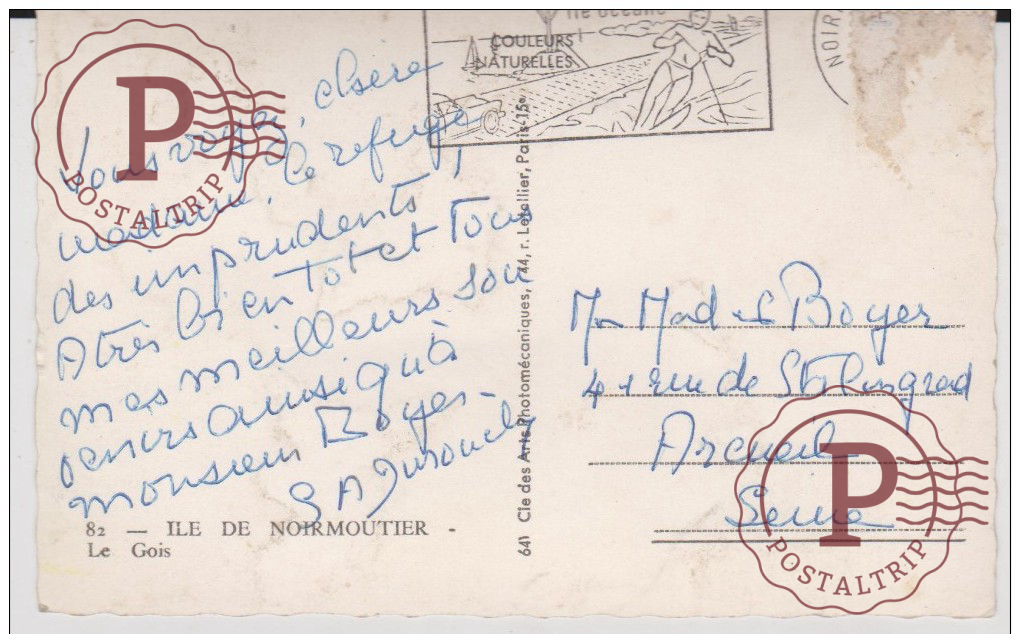 île océane
COULEURS
NATURELLES
NOIR
Vous voyez, chère
madame, le refuge
des imprudents,
A très bientot et tous
mes meilleurs sou
venirs ainsi qu'à
monsieur Boyer-
82 — ILE DE NOIRMOUTIER -
Le Gois
Cie des Arts Photomécaniques, 44, r. Letellier, Paris-15e
641
Boyer
41 rue de Stalingrad
Arcueil
Seine
P
POSTALTRIP
P
POSTALTRIP